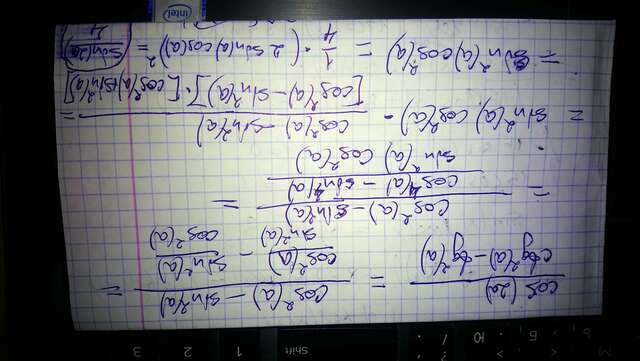 cos(2a) / (ctg²(a) - tg²(a)) = (cos²(a) - sin²(a)) / (cos²(a)/sin²(a) - sin²(a)/cos²(a)) =
= (cos²(a) - sin²(a)) / ((cos⁴(a) - sin⁴(a)) / (sin²(a) cos²(a))) =
= sin²(a) cos²(a) · (cos²(a) - sin²(a)) / ([cos²(a) - sin²(a)] · [cos²(a) + sin²(a)]) =
= sin²(a) cos²(a) = 1/4 · (2 sin(a) cos(a))² = sin²(2a) / 4
intel
Shift 1 2 3